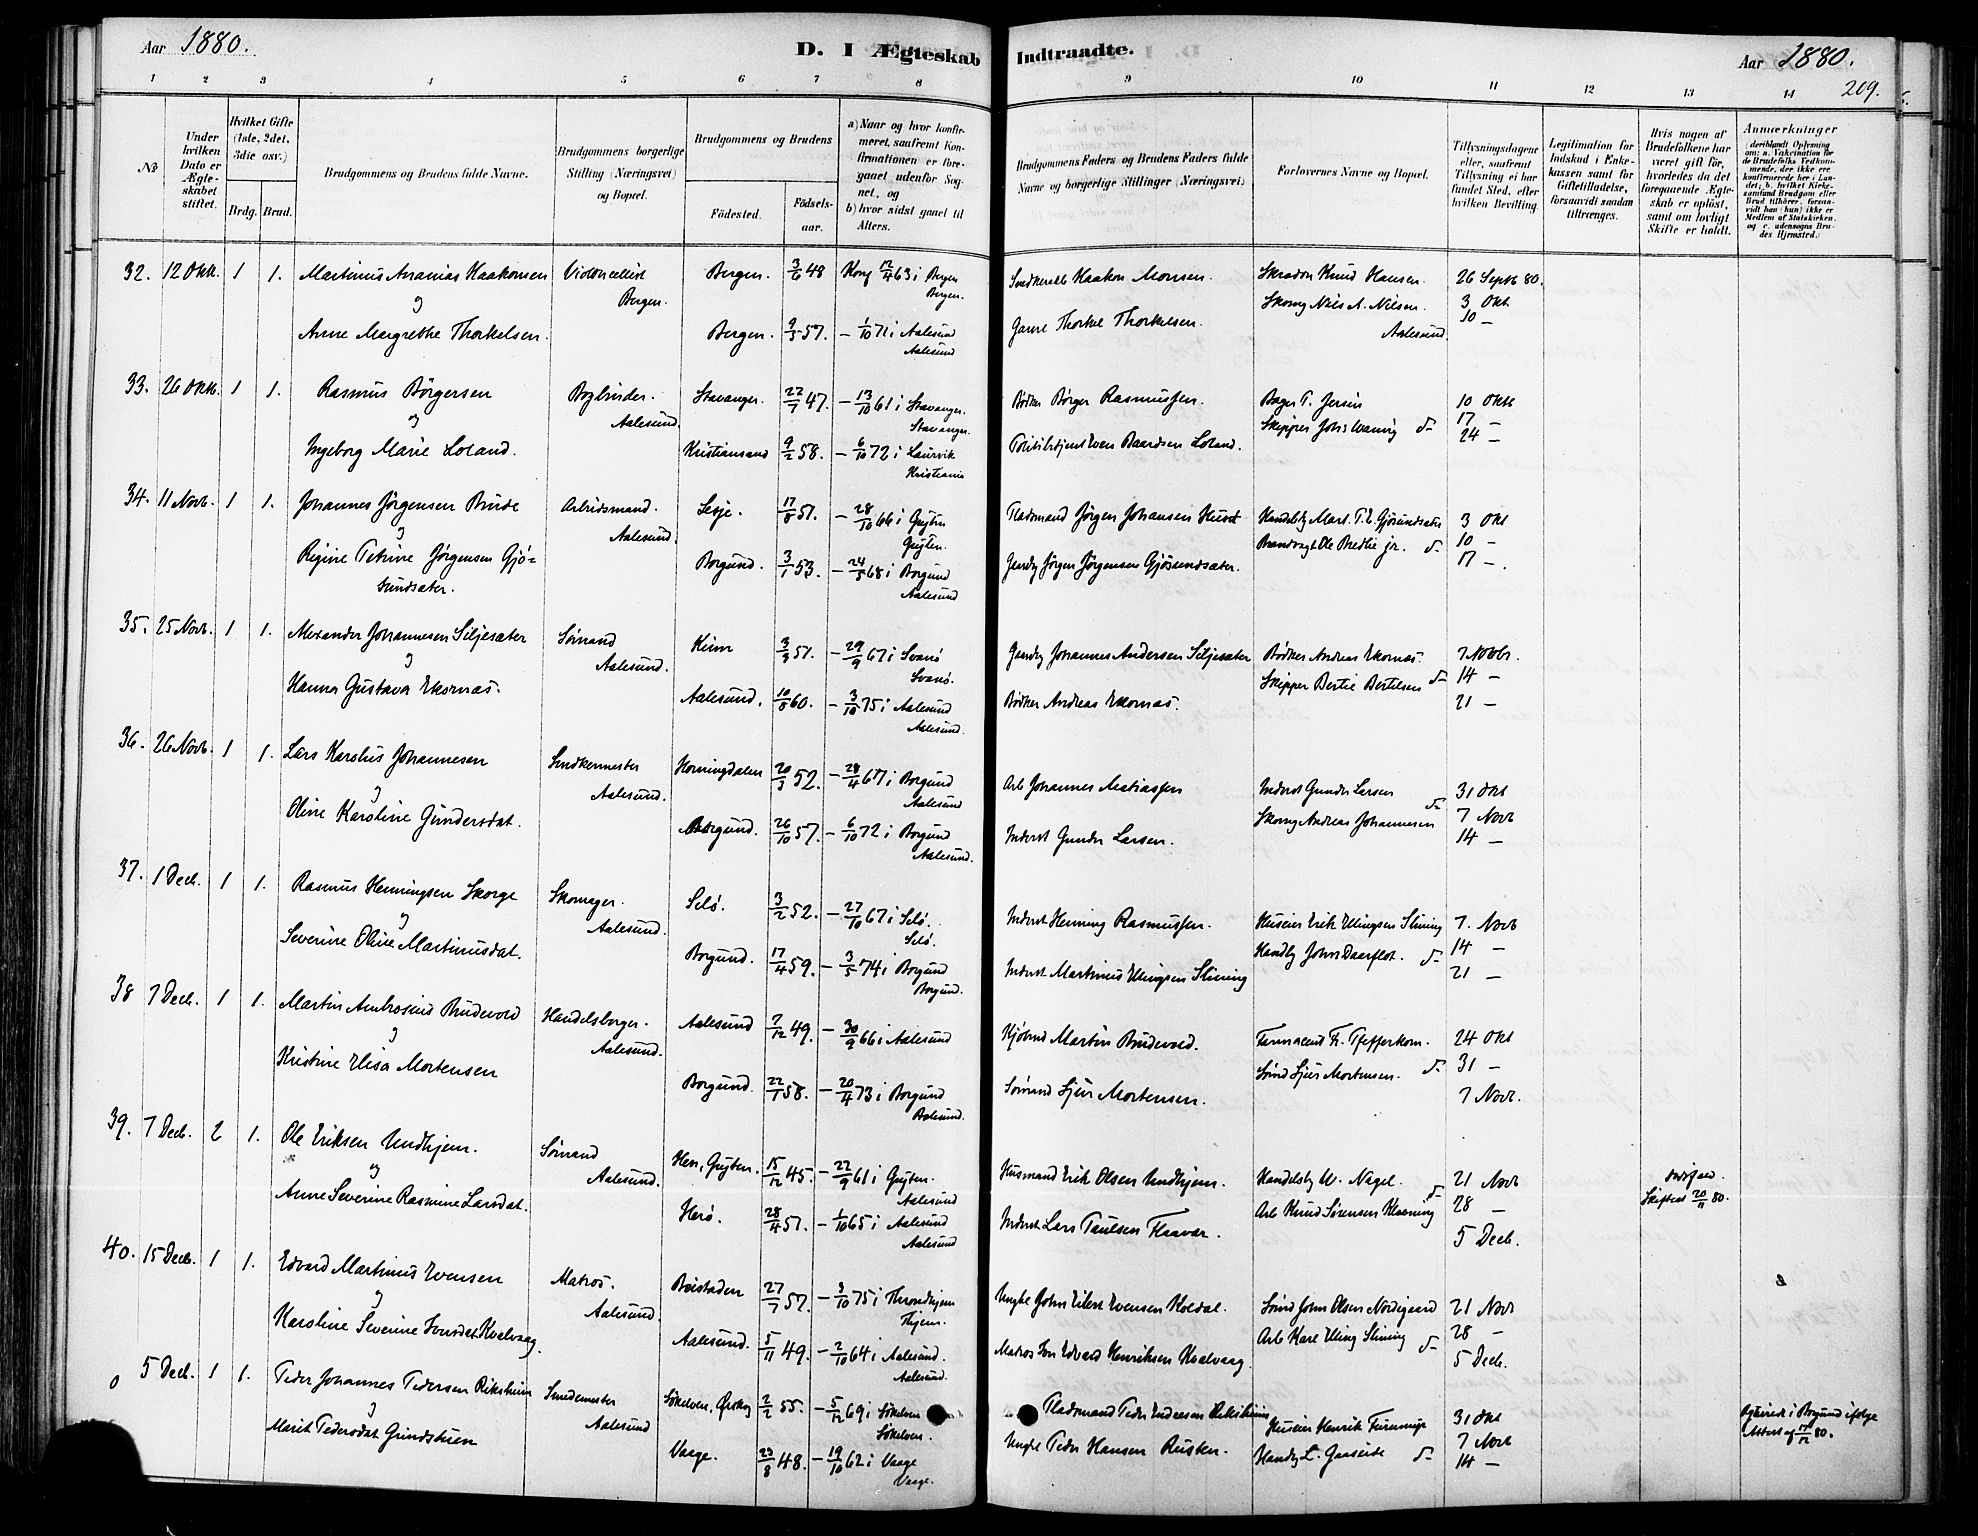 Aar 1880.
D. I Ægteskab Indtraadte.
Aar 1880.
209.
1 2 3 4 5 6 7 8 9 10 11 12 13 14
№
Under hvilken Dato er Ægte-skabet stiftet.
Hvilket Gifte (1ste, 2det, 3die osv.)
Brdg. Brud.
Brudgommens og Brudens fulde Navne.
Brudgommens borgerlige Stilling (Næringsvei) og Bopæl.
Brudgommens og Brudens
Födested.
Födsels-aar.
a) Naar og hvor konfir-meret, saafremt Kon-firmationen er fore-gaaet udenfor Sog-net, og b) hvor sidst gaaet til Alters.
Brudgommens Faders og Brudens Faders fulde Navne og borgerlige Stillinger (Næringsvei)
Forlovernes Navne og Bopæl.
Tillysningsdagene eller, saafremt Tillysning ei har fundet Sted, efter hvilken Bevilling.
Legitimation for Indskud i Enke-kassen samt for Giftetilladelse, forsaavidt saadan tiltrænges.
Hvis nogen af Brudefolkene har været gift før, hvorledes da det foregaaende Ægte-skab er oplöst, samt om lovligt Skifte er holdt.
Anmærkninger (deriblandt Oplysning om: a. Vakcination for de Brudefolks Vedkom-mende, der ikke ere konfirmerede her i Lan-det; b. hvilket Kirke-samfund Brudgom eller Brud tilhörer, forsaa-vidt han (hun) ikke er Medlem af Statskirken, og c. udensogns Bru-des Hjemsted.)
32. 12 Okt. 1 1. Martinus Ananias Haakonsen Violoncellist Bergen. 3/6 48 Konf 12/4 63 i Bergen Snedkersv. Haakon Monsen. Knud Hansen. 26 Septb 80.
og Bergen. Bergen. Skomg Niels A. Nilsen. 3 Okt
Anne Margrethe Thorkelsen. Bergen. 9/3 57. – 1/10 71 i Aalesund Thorkel Thorkelsen. Aalesund. 10 –
Aalesund
33. 26 Oktb. 1 1. Rasmus Börgersen Bogbinder. Stavanger. 22/7 47. – 13/10 61 i Stavanger. Bödker Börger Rasmussen. Bager T. Jersin 10 Oktb
og Aalesund. Stavanger. Skipper Johs Wanvig d– 17 –
Ingeborg Marie Loland. Kristiansand 9/2 58. – 6/10 72 i Laurvik Politibetjent Even Baardsen Loland. 24 –
Kristiania
34. 11 Novb. 1 1. Johannes Jörgensen Brude Arbeidsmand. Lesje. 17/8 51. – 28/10 66 i Grytten Pladsmand Jörgen Johansen Handelsbg Mart. P. L. Gjøsundsæter 3 Okt
og Aalesund. Grytten. Brandvagt Ole Bredlie jr. d– 10 –
Regine Petrine Jörgensen Gjö- Borgund. 3/1 53. – 24/5 68 i Borgund Gaardbr Jörgen Jörgensen Gjösundsæter. 17 –.
sundsæter. Aalesund
35. 25 Novb. 1 1. Alexander Johannesen Siljesæter Sömand Kinn 3/3 51. – 29/9 67 i Svanö Gaardbr Johannes Andersen Siljesæter Bödker Andreas Ekornæs. 7 Novbr.
og Aalesund. Svanö. Skipper Bertie Bertelsen d– 14 –
Hanna Gustava Ekornæs. Aalesund. 10/8 60. – 3/10 75 i Aalesund Bödker Andreas Ekornæs. 21 –
Aalesund.
36. 26 Novb. 1 1. Lars Karolus Johannesen Snedkermester Horningdalen 20/3 52. – 28/4 67 i Borgund Arb Johannes Matiassen Inderst Gunder Larsen 31 Okt
og Aalesund. Aalesund d– Skomg Andreas Johannesen 7 Novb
Oline Karoline Gundersdat. Borgund. 26/10 57. – 6/10 72 i Borgund Inderst Gunder Larsen. 14 –
Aalesund.
37. 1 Decb. 1 1. Rasmus Henningsen Skorge Skomager. Selö. 3/2 52. – 27/10 67 i Selö. Inderst Henning Rasmussen. Huseier Erik Ellingsen Slinning 7. Novb
og Aalesund. Selö. Handlbg Johs Daarflot. d– 14 –
Severine Oline Martinusdat. Borgund. 17/4 59. – 3/5 74 i Borgund Inderst Martinus Ellingsen Slinning 21 –
Borgund.
38 7 Decb. 1 1. Martin Ambrosius Brudevold Handelsborger. Aalesund 7/12 49. – 30/9 66 i Aalesund Kjöbmd Martin Brudevold. Fr. Pfefferkorn. 24 Okt
og Aalesund. Sömd Sjur Mortensen. d– 31 –
Kristine Elisa Mortensen Borgund. 22/1 58. – 20/4 73 i Borgund Sömand Sjur Mortensen. 7 Novb.
Aalesund.
39. 7 Decb. 2 1. Ole Eriksen Undhjem. Sömand Hen, Grytten. 15/12 45. – 22/9 61 i Grytten. Husmand Erik Olsen Undhjem. Handelsbg W. Nagel. d– 21 Novb
og Aalesund. Aalesund Arb Knud Sörensen Klævning 28 – Skiftet 20/11 80.
Anne Severine Rasmine Larsdat. Herö. 28/4 51. – 1/10 65 i Aalesund Inderst Lars Paulsen Flaavær. 5 Decb.
Aalesund
40. 15 Decb. 1 1. Edvard Martinus Evensen Matros. Beistaden 27/7 57. – 3/10 75 i Throndhjem Ungkl John Eilert Evensen Koldal. Sömd John Olsen Nordgaard 21 Novb
og Aalesund. Thjem. Arb Karl Elling Slinning d– 28 –
Karoline Severine Kvalvaag. Aalesund. 5/11 49. – 2/10 64 i Aalesund. Matros Edvard Henriksen Kvalvaag. 5 Decb.
Aalesund.
0 5 Decb. 1 1. Peder Johannes Pedersen Riksheim Smedemester Sökelven, Ørskog 2/2 55. – 5/12 69 i Sökelven Pladsmand Peder Endresen Riksheim Huseier Henrik 31 Okt Ægteviet i Borgund ifølge
og Aalesund Sökelven. 7 Novb Attest af 17/12 80.
Marit Pedersdat Grindstuen Vaage. 23/8 48. – 19/10 62 i Vaage Ungkl Peder Hansen Rusten. Handlbg L. Gaaseide d– 14 –
Vaage.